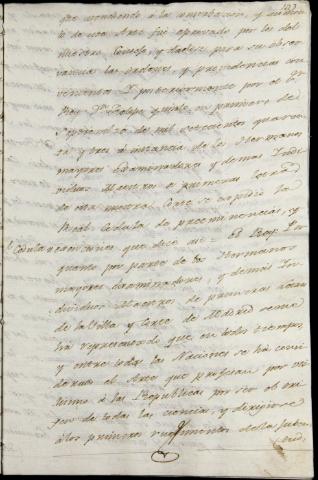 103
que atendiendo à la aprobacion, y
de esta Arte fue aprovado por los del
nuestro Consejo, y dadose para su obser
vancia las ordenes, y providencias con
venientes Y posteriormente por el Sor
Rey Dn Felipe quinto en primero de
Septiembre de mil setecientos quaren
ta y tres à instancia de los Hermanos
mayores Examinadores y demas Indi
viduos Maestros de primeras letras
de esta nuestra Corte se expidio la
Real Cedula de preeminencias, y
Cedula exempciones que dice asi = El Rey: Por
quanto por parte de los Hermanos
mayores examinadores, y demas In
dividuos Maestros de primeras letras
de la Villa y Corte de Madrid se me
ha representado que en todos tiempos,
y entre todas las Naciones se ha consi
derado el Arte que profesan por uti
lisimo à las Republicas por ser el ori
gen de todas las ciencias, y dirigirse
à los primeros rudimentos de la Juben
tud,